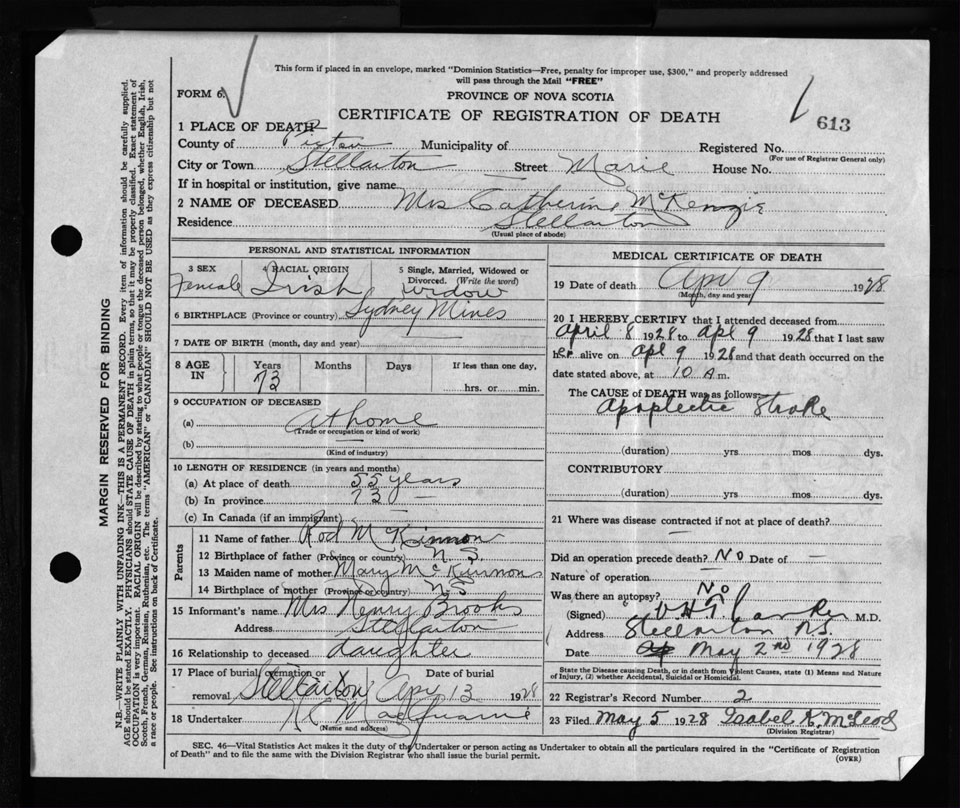 This form if placed in an envelope, marked "Dominion Statistics—Free, penalty for improper use, $300," and properly addressed
will pass through the Mail "FREE"
FORM 6.
PROVINCE OF NOVA SCOTIA
CERTIFICATE OF REGISTRATION OF DEATH
613
1 PLACE OF DEATH
County of Pictou Municipality of Registered No.
(For use of Registrar General only)
City or Town Stellarton Street Marie House No.
If in hospital or institution, give name
2 NAME OF DECEASED Mrs Catherine McKenzie
Residence Stellarton
(Usual place of abode)
PERSONAL AND STATISTICAL INFORMATION
3 SEX 4 RACIAL ORIGIN 5 Single, Married, Widowed or
Divorced. (Write the word)
Female Irish widow
6 BIRTHPLACE (Province or country) Sydney Mines
7 DATE OF BIRTH (month, day and year)
8 AGE IN Years Months Days If less than one day,
73 hrs. or min.
9 OCCUPATION OF DECEASED
(a) at home
(Trade or occupation or kind of work)
(b)
(Kind of industry)
10 LENGTH OF RESIDENCE (in years and months)
(a) At place of death 55 years
(b) In province 73 —
(c) In Canada (if an immigrant) —
Parents
11 Name of father Rod McKinnon
12 Birthplace of father (Province or country) N S
13 Maiden name of mother Mary McKinnon
14 Birthplace of mother (Province or country) N.S
15 Informant's name Mrs Henry Brooks
Address Stellarton
16 Relationship to deceased daughter
17 Place of burial, cremation or Date of burial
removal Stellarton Apr 13 1928
18 Undertaker
(Name and address)
MEDICAL CERTIFICATE OF DEATH
19 Date of death Apr 9 1928
(Month, day and year)
20 I HEREBY CERTIFY that I attended deceased from
April 8 1928 to Apl 9 1928 that I last saw
her alive on Apl 9 1928 and that death occurred on
date stated above, at 10 A m.
The CAUSE of DEATH was as follows:
Apoplectic Stroke
(duration) yrs mos dys.
CONTRIBUTORY
(duration) yrs mos dys.
21 Where was disease contracted if not at place of death?
—
Did an operation precede death? No Date of —
Nature of operation —
Was there an autopsy? No
(Signed) M.D.
Address Stellarton N.S.
Date May 2nd 1928
State the Disease causing Death, or in death from Violent Causes, state (1) Means and Nature
of Injury, (2) whether Accidental, Suicidal or Homicidal.
22 Registrar's Record Number 2
23 Filed May 5 1928 Isabel K. McLeod
(Division Registrar)
SEC. 46—Vital Statistics Act makes it the duty of the Undertaker or person acting as Undertaker to obtain all the particulars required in the "Certificate of Registration
of Death" and to file the same with the Division Registrar who shall issue the burial permit.
(OVER)
MARGIN RESERVED FOR BINDING
N.B.—WRITE PLAINLY WITH UNFADING INK—THIS IS A PERMANENT RECORD. Every item of information should be carefully supplied.
AGE should be stated EXACTLY. PHYSICIANS should STATE CAUSE OF DEATH in plain terms, so that it may be properly classified. Exact statement of
OCCUPATION is very important. RACIAL ORIGIN will be described by stating to what people or tongue the deceased person belonged, whether English, Irish,
Scotch, French, German, Russian, Ruthenian, etc. The terms "AMERICAN" or "CANADIAN" SHOULD NOT BE USED as they express citizenship but not
a race or people. See instructions on back of Certificate.